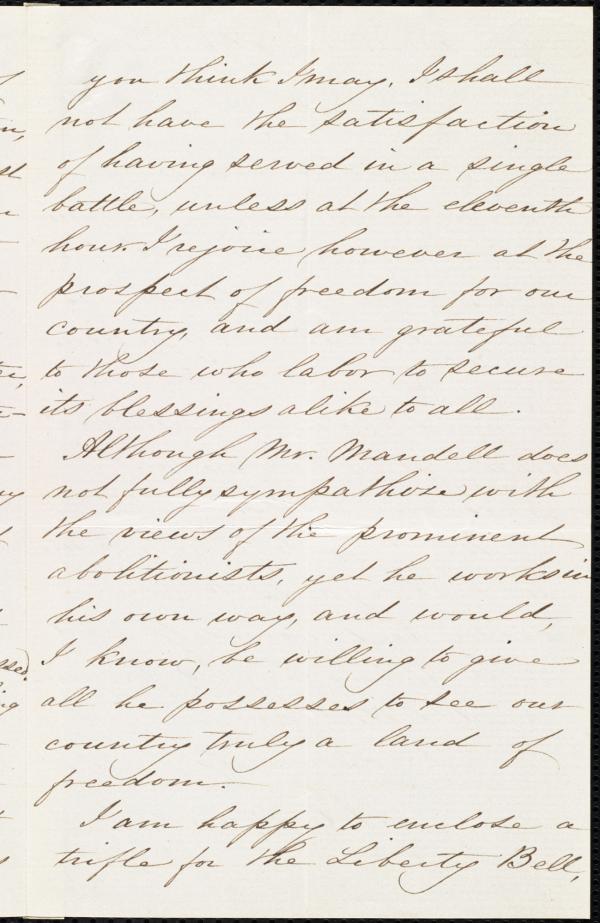 you think I may. I shall
not have the satisfaction
of having served in a single
battle, unless at the eleventh
hour. I rejoice however at the
prospect of freedom for our
country, and am grateful
to those who labor to secure
its blessings alike to all.
Although Mr. Mandell does
not fully sympathize with
the views of the prominent
abolitionists, yet he works in
his own way, and would,
I know, be willing to give
all he possesses to see our
country truly a land of
freedom.
I am happy to enclose a
trifle for the Liberty Bell,